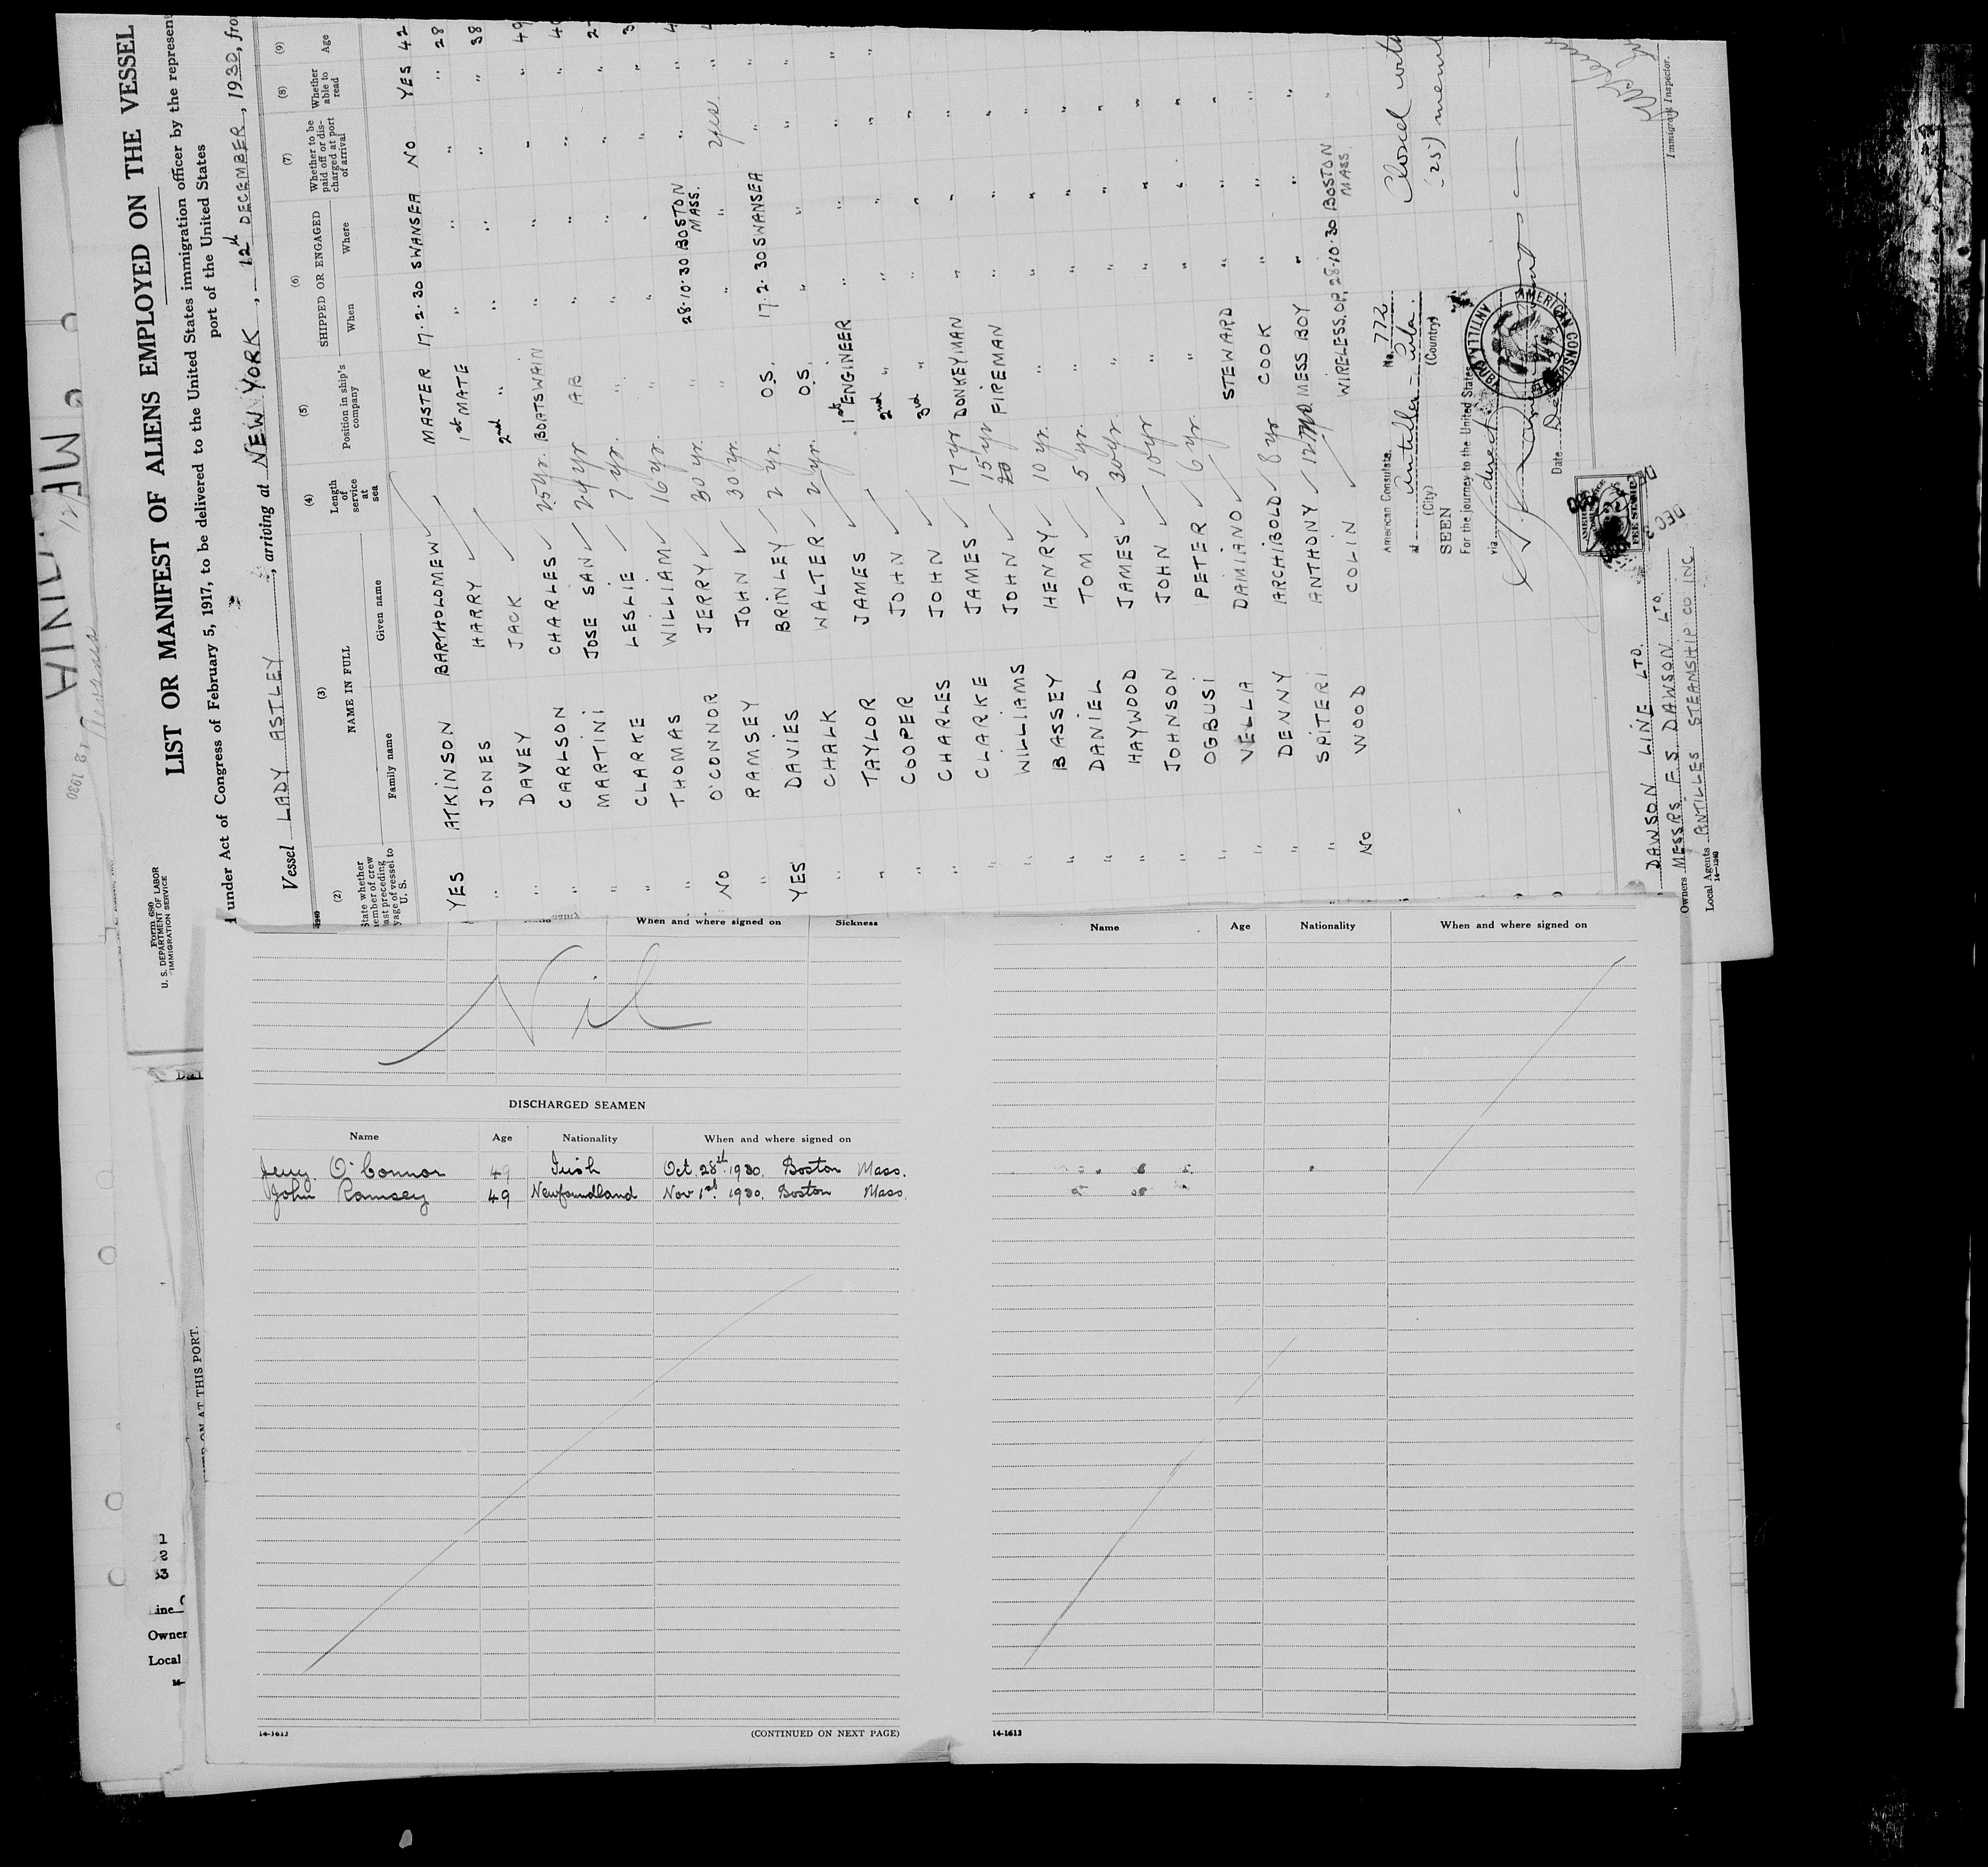 LIST OR MANIFEST OF ALIENS EMPLOYED ON THE VESSEL
under Act of Congress of February 5, 1917, to be delivered to the United States immigration officer by the represent
port of the United States
Vessel LADY ASTLEY, arriving at NEW YORK, 12th DECEMBER, 1930, fro
Form 680
U. S. DEPARTMENT OF LABOR
IMMIGRATION SERVICE
(2) (3) (4) (5) (6) (7) (8) (9)
State whether member of crew last preceding voyage of vessel to U. S.
NAME IN FULL
Family name Given name
Length of service at sea
Position in ship's company
SHIPPED OR ENGAGED
When Where
Whether to be paid off or discharged at port of arrival
Whether able to read
Age
YES ATKINSON BARTHOLOMEW MASTER 17.2.30 SWANSEA NO YES 42
" JONES HARRY 1st MATE " " " " 28
DAVEY JACK 2nd " " " " " 38
" CARLSON CHARLES 25 yr. BOATSWAIN " " " " 49
" MARTINI JOSE SAN 24 yr AB " " " "
" CLARKE LESLIE 7 yr. " " " " "
" THOMAS WILLIAM 16 yr. " " " "
" O'CONNOR JERRY 30 yr. " 28.10.30 BOSTON MASS. " "
NO RAMSEY JOHN 30 yr. " " " yes "
" DAVIES BRINLEY 2 yr. O.S. 17.2.30 SWANSEA " "
YES CHALK WALTER 2 yr. O.S. " " " "
" TAYLOR JAMES 1st ENGINEER " " " "
" COOPER JOHN 2nd " " " " "
" CHARLES JOHN 3rd " " " " "
" CLARKE JAMES 17 yr DONKEYMAN " " " "
" WILLIAMS JOHN 15 yr FIREMAN " " " "
" BASSEY HENRY 10 yr. " " " " "
" DANIEL TOM 5 yr. " " " " "
" HAYWOOD JAMES 30 yr. " " " " "
" JOHNSON JOHN 10 yr " " " " "
" OGBUSI PETER 6 yr. " " " " "
" VELLA DAMIANO STEWARD " " " "
" DENNY ARCHIBOLD 8 yr COOK " " " "
" SPITERI ANTHONY 12 mo. MESS BOY " " " "
NO WOOD COLIN WIRELESS.OP. 28.10.30 BOSTON MASS. "
American Consulate, No. 772
at Antilla - Cuba.
(City) (Country)
SEEN
For the journey to the United States
via direct
Date
ANTILLA, CUBA
AMERICAN CONSUL
FEE STAMP
Closed with
(25)
Immigrant Inspector.
DAWSON LINE LTD.
Owners MESSRS F S DAWSON LTD.
Local Agents ANTILLES STEAMSHIP CO INC
14-1240
18 1930
When and where signed on Sickness
Nil
DISCHARGED SEAMEN
Name Age Nationality When and where signed on
Jerry O'Connor 49 Irish Oct. 28th 1930. Boston Mass.
John Ramsey 49 Newfoundland Nov 1st 1930. Boston Mass.
14-1613 (CONTINUED ON NEXT PAGE)
Name Age Nationality When and where signed on
14-1613
ON AT THIS PORT.
Line
Owner
Local